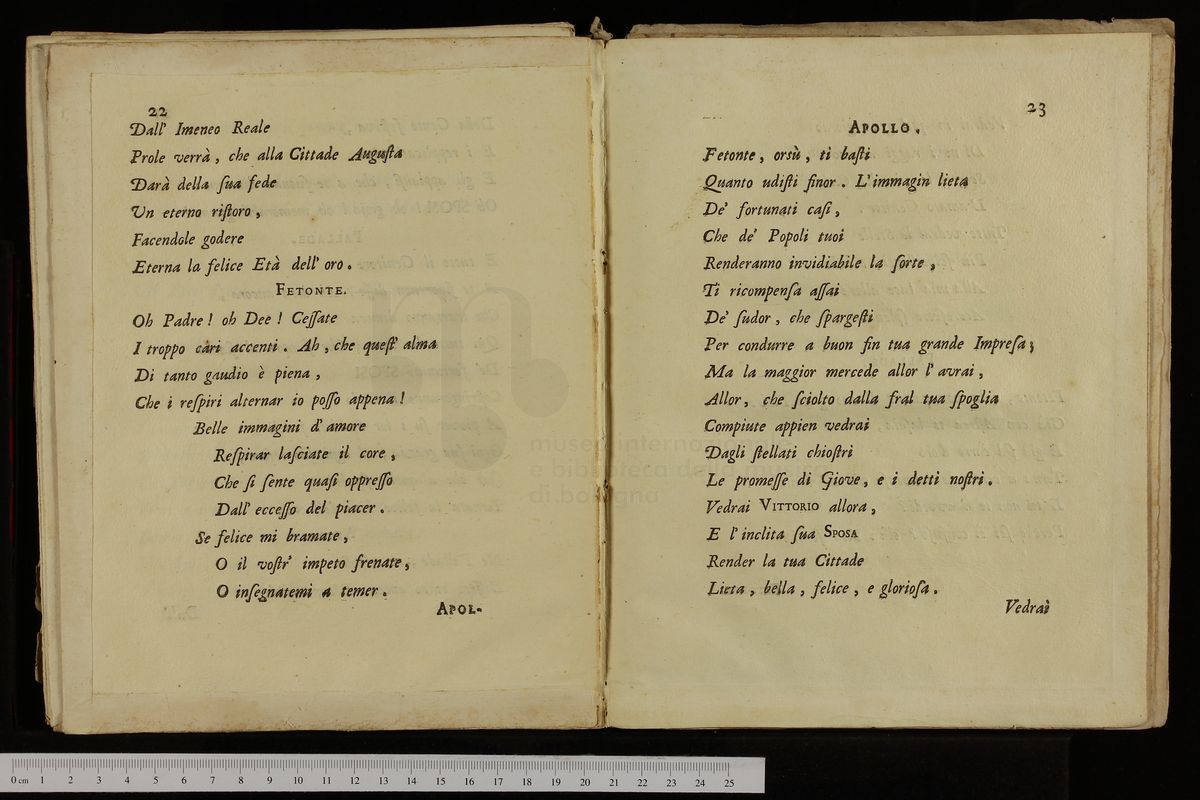 22
Dall' Imeneo Reale
Prole verrà, che alla Cittade Auguſta
Darà della ſua fede
Un eterno riſtoro,
Facendole godere
Eterna la felice Età dell' oro.
FETONTE.
Oh Padre! oh Dee! Ceſſate
I troppo cari accenti. Ah, che queſt' alma
Di tanto gaudio è piena,
Che i reſpiri alternar io poſſo appena!
Belle immagini d' amore
Reſpirar laſciate il core,
Che ſi ſente quaſi oppreſſo
Dall' ecceſſo del piacer.
Se felice mi bramate,
O il voſtr' impeto frenate,
O inſegnatemi a temer.
APOL-
23
APOLLO.
Fetonte, orsù, ti baſti
Quanto udiſti finor. L' immagin lieta
De' fortunati caſi,
Che de' Popoli tuoi
Renderanno invidiabile la ſorte,
Ti ricompenſa aſſai
De' ſudor, che ſpargeſti
Per condurre a buon fin tua grande Impreſa;
Ma la maggior mercede allor l' avrai,
Allor, che ſciolto dalla fral tua ſpoglia
Compiute appien vedrai
Dagli ſtellati chioſtri
Le promeſſe di Giove, e i detti noſtri.
Vedrai VITTORIO allora,
E l' inclita ſua SPOSA
Render la tua Cittade
Lieta, bella, felice, e glorioſa.
Vedrai
museo internazionale
e biblioteca della musica
di bologna
0 cm 1 2 3 4 5 6 7 8 9 10 11 12 13 14 15 16 17 18 19 20 21 22 23 24 25